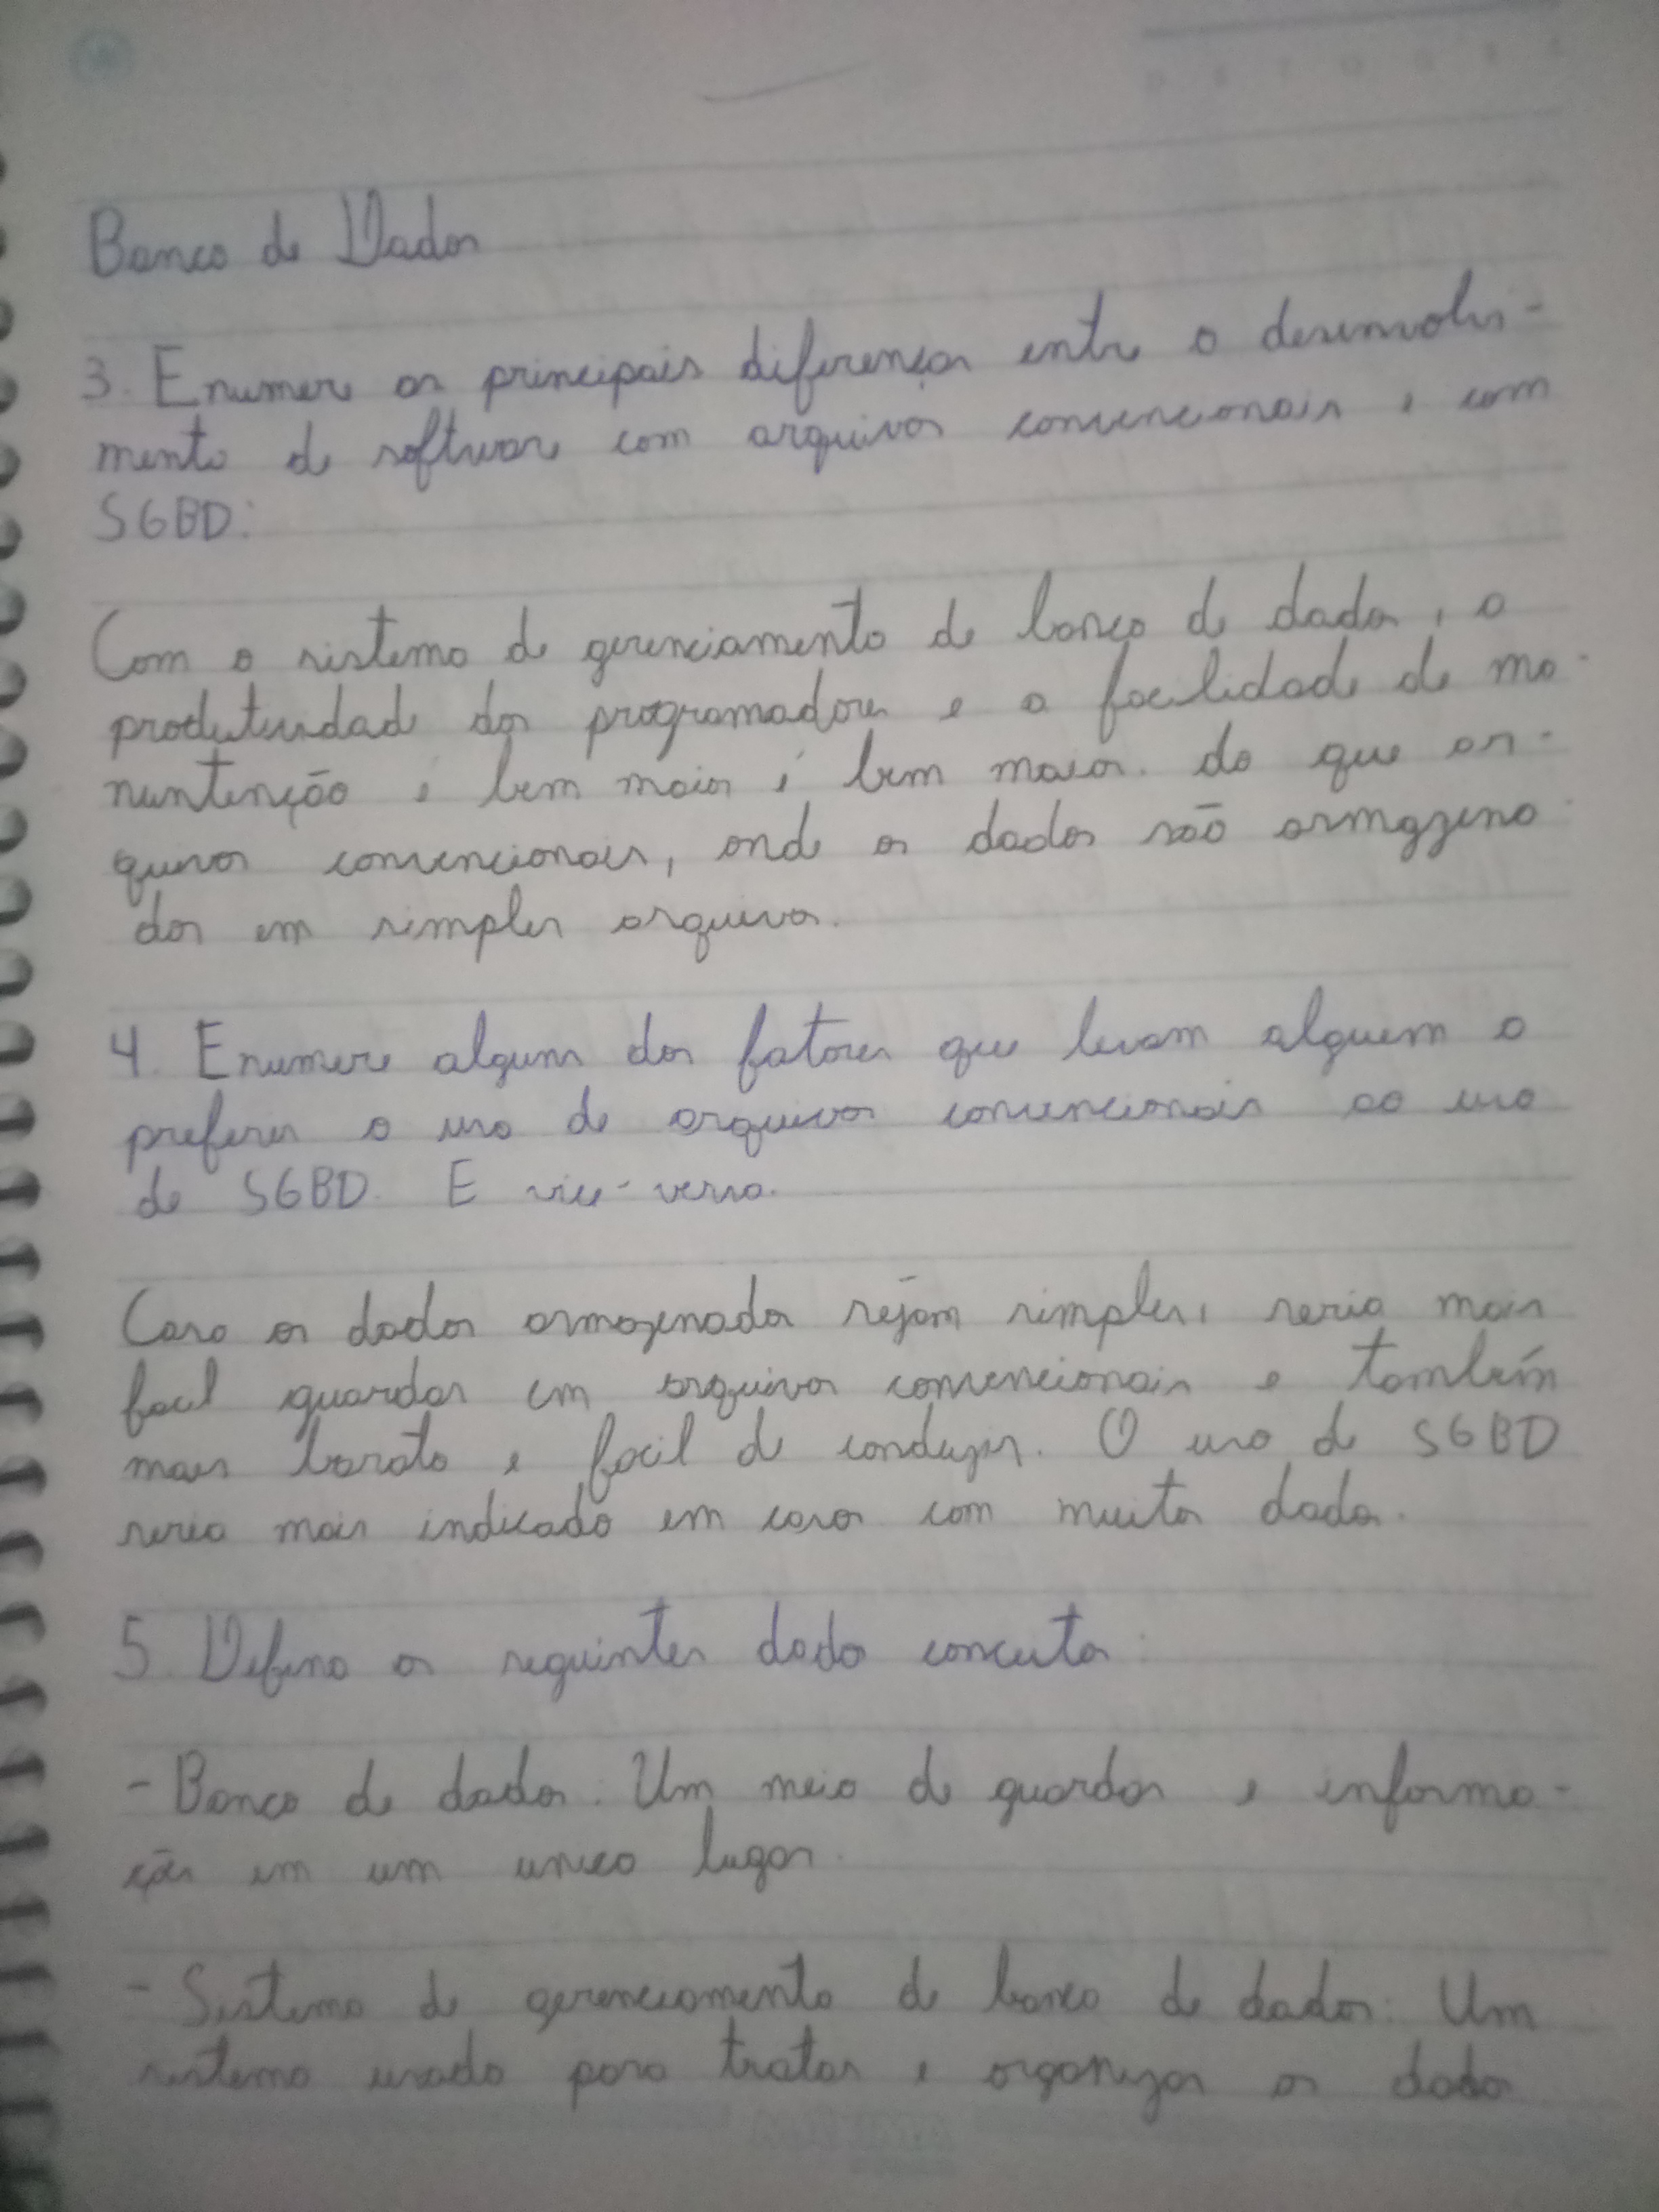 Banco de Dados
3. Enumere as principais diferenças entre o desenvolvi-
mento de software com arquivos convencionais e com
SGBD:
Com o sistema de gerenciamento de banco de dados, a
produtividade dos programadores e a facilidade de ma-
nuntenção é bem maior é bem maior. do que ar-
quivos convencionais, onde os dados são armazena-
dos em simples arquivos.
4. Enumere alguns dos fatores que levam alguem a
preferir o uso de arquivos convencionais ao uso
de SGBD. E vice-versa.
Caso os dados armazenados sejam simples, seria mais
facil guardar em arquivos convencionais e também
mais barato e facil de conduzir. O uso de SGBD
seria mais indicado em casos com muitos dados.
5. Defina os seguintes dados conceitos:
- Banco de dados: Um meio de guardar e informa-
ções em um unico lugar.
- Sistema de gerenciamento de banco de dados: Um
sistema usado para tratar e organizar os dados